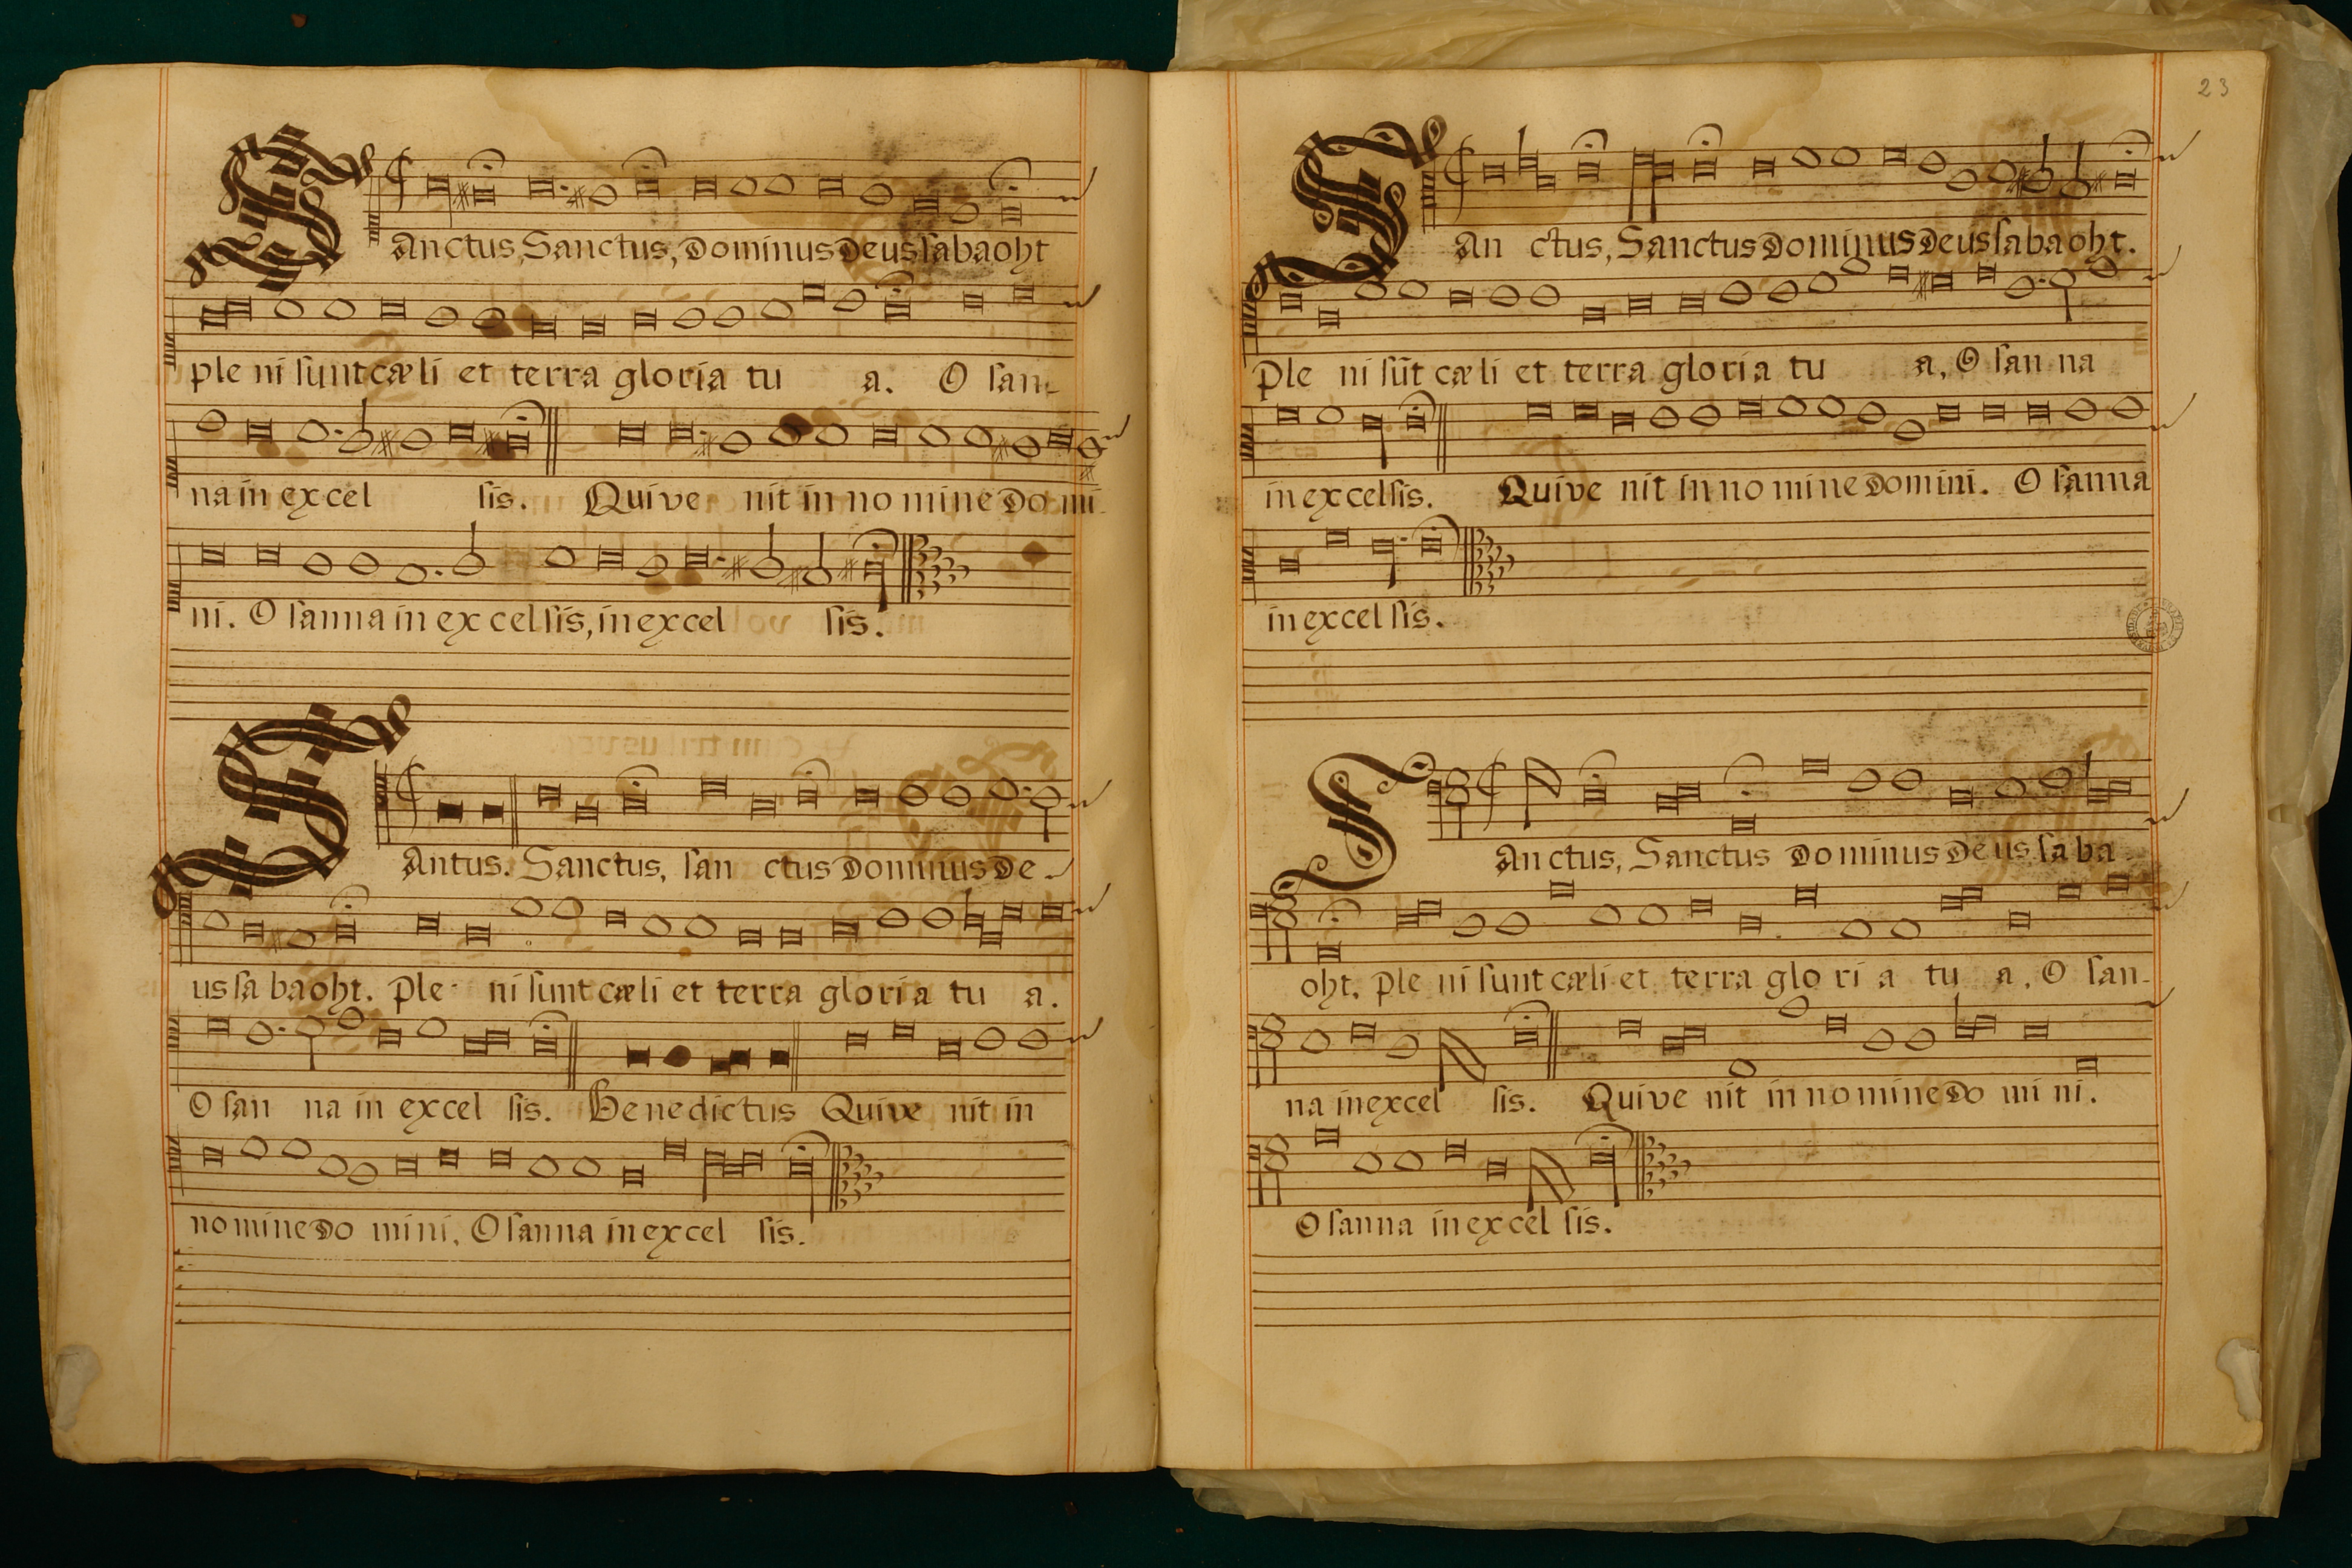 SAnctus, Sanctus, Dominus Deus sabaoht
ple ni sunt cæli et terra gloria tu a. O san-
na in excel sis. Qui ve nit in no mine Do mi-
ni. O sanna in ex cel sis, in excel sis.
SAntus. Sanctus, san ctus Dominus De-
us sa baoht. ple ni sunt cæli et terra gloria tu a.
O san na in excel sis. Benedictus Qui ve nit in
no mine Do mini. O sanna in excel sis.
23
SAn ctus, Sanctus Dominus Deus sabaoht.
ple ni sūt cæli et terra gloria tu a, O san na
in excelsis. Qui ve nit in no mine Domini. O sanna
in excel sis.
SAnctus, Sanctus Dominus Deus sa ba-
oht. ple ni sunt cæli et terra glo ri a tu a. O san-
na in excel sis. Qui ve nit in no mine Do mi ni.
O sanna in excel sis.